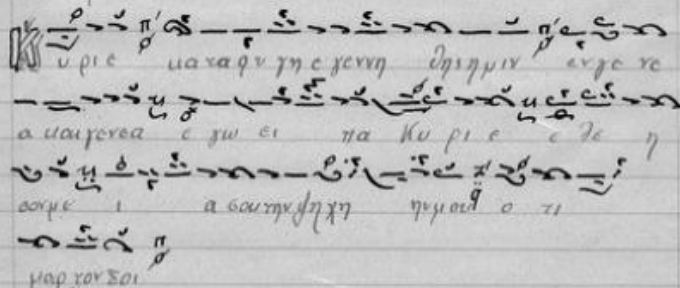 Κ υ ρι ε κα τα φυ γη ε γεννη θη ημιν εν γε νε
α και γενεα ε γω ει πα Κυ ρι ε ε λε η
σον με ι α σου την ψη χη ην μου ο τι
μαρ τον σοι